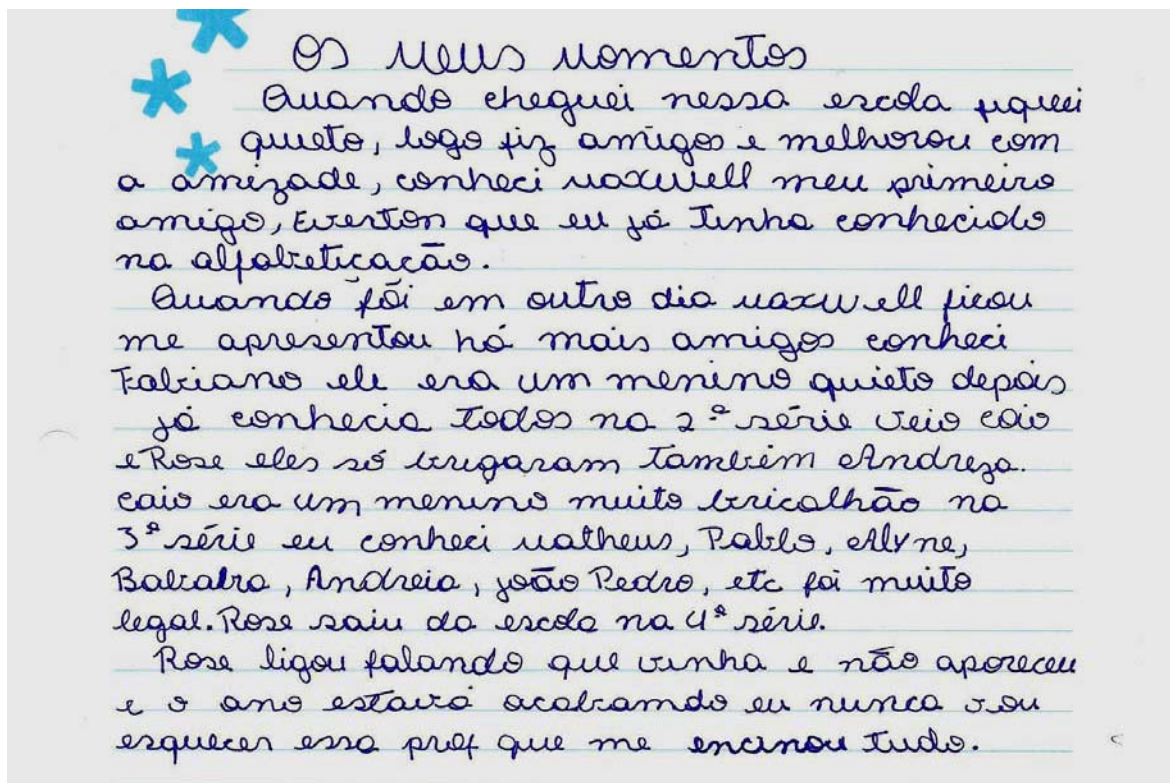 Os Meus Momentos
Quando cheguei nessa escola fiquei
quieto, logo fiz amigos e melhorou com
a amizade, conheci Maxwell meu primeiro
amigo, Everton que eu já tinha conhecido
na alfabeticacão.
Quando foi em outro dia Maxwell ficou
me apresentou há mais amigos conheci
Fabiano ele era um menino quieto depois
já conhecia todos na 2ª série veio caio
e Rose eles só brigaram também Andreza.
caio era um menino muito bricalhão na
3ª série eu conheci Matheus, Pablo, Alyne,
Andreia, joão Pedro, etc foi muito
legal. Rose saiu da escola na 4ª série.
Rose ligou falando que vinha e não apareceu
e o ano estavá acabamdo eu nunca vou
esquecer essa prof que me encinou tudo.